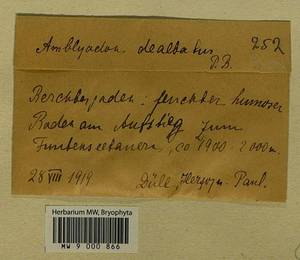 Amblyodon dealbatus 252
P.B.
Berchtesgaden: feuchter humoser
Boden am Aufstieg zum
Funtenseetauern, ca 1900-2000 m
28 VIII 1919. Düll, Herzog, Paul.
Herbarium MW, Bryophyta
MW 9 000 866